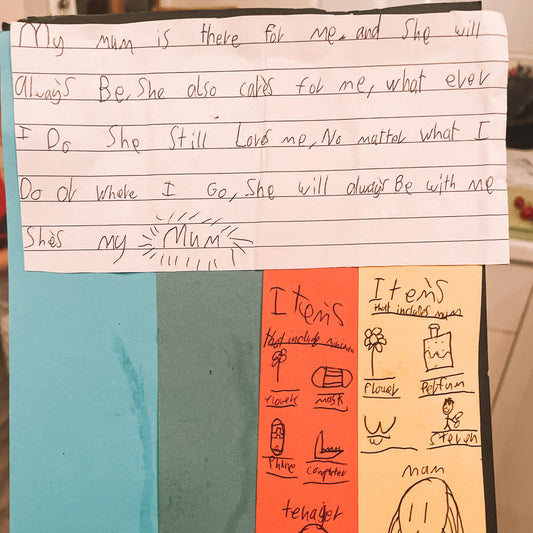 My mum is there for me, and She will
always Be, She also cares for me, what ever
I Do She Still Loves me, No matter what I
Do or where I Go, She will always Be with me
She's my Mum
Items
that include
flowers
mask
Phone
computer
tenager
Items
that includes mum
flower
Perfum
Steven
mam